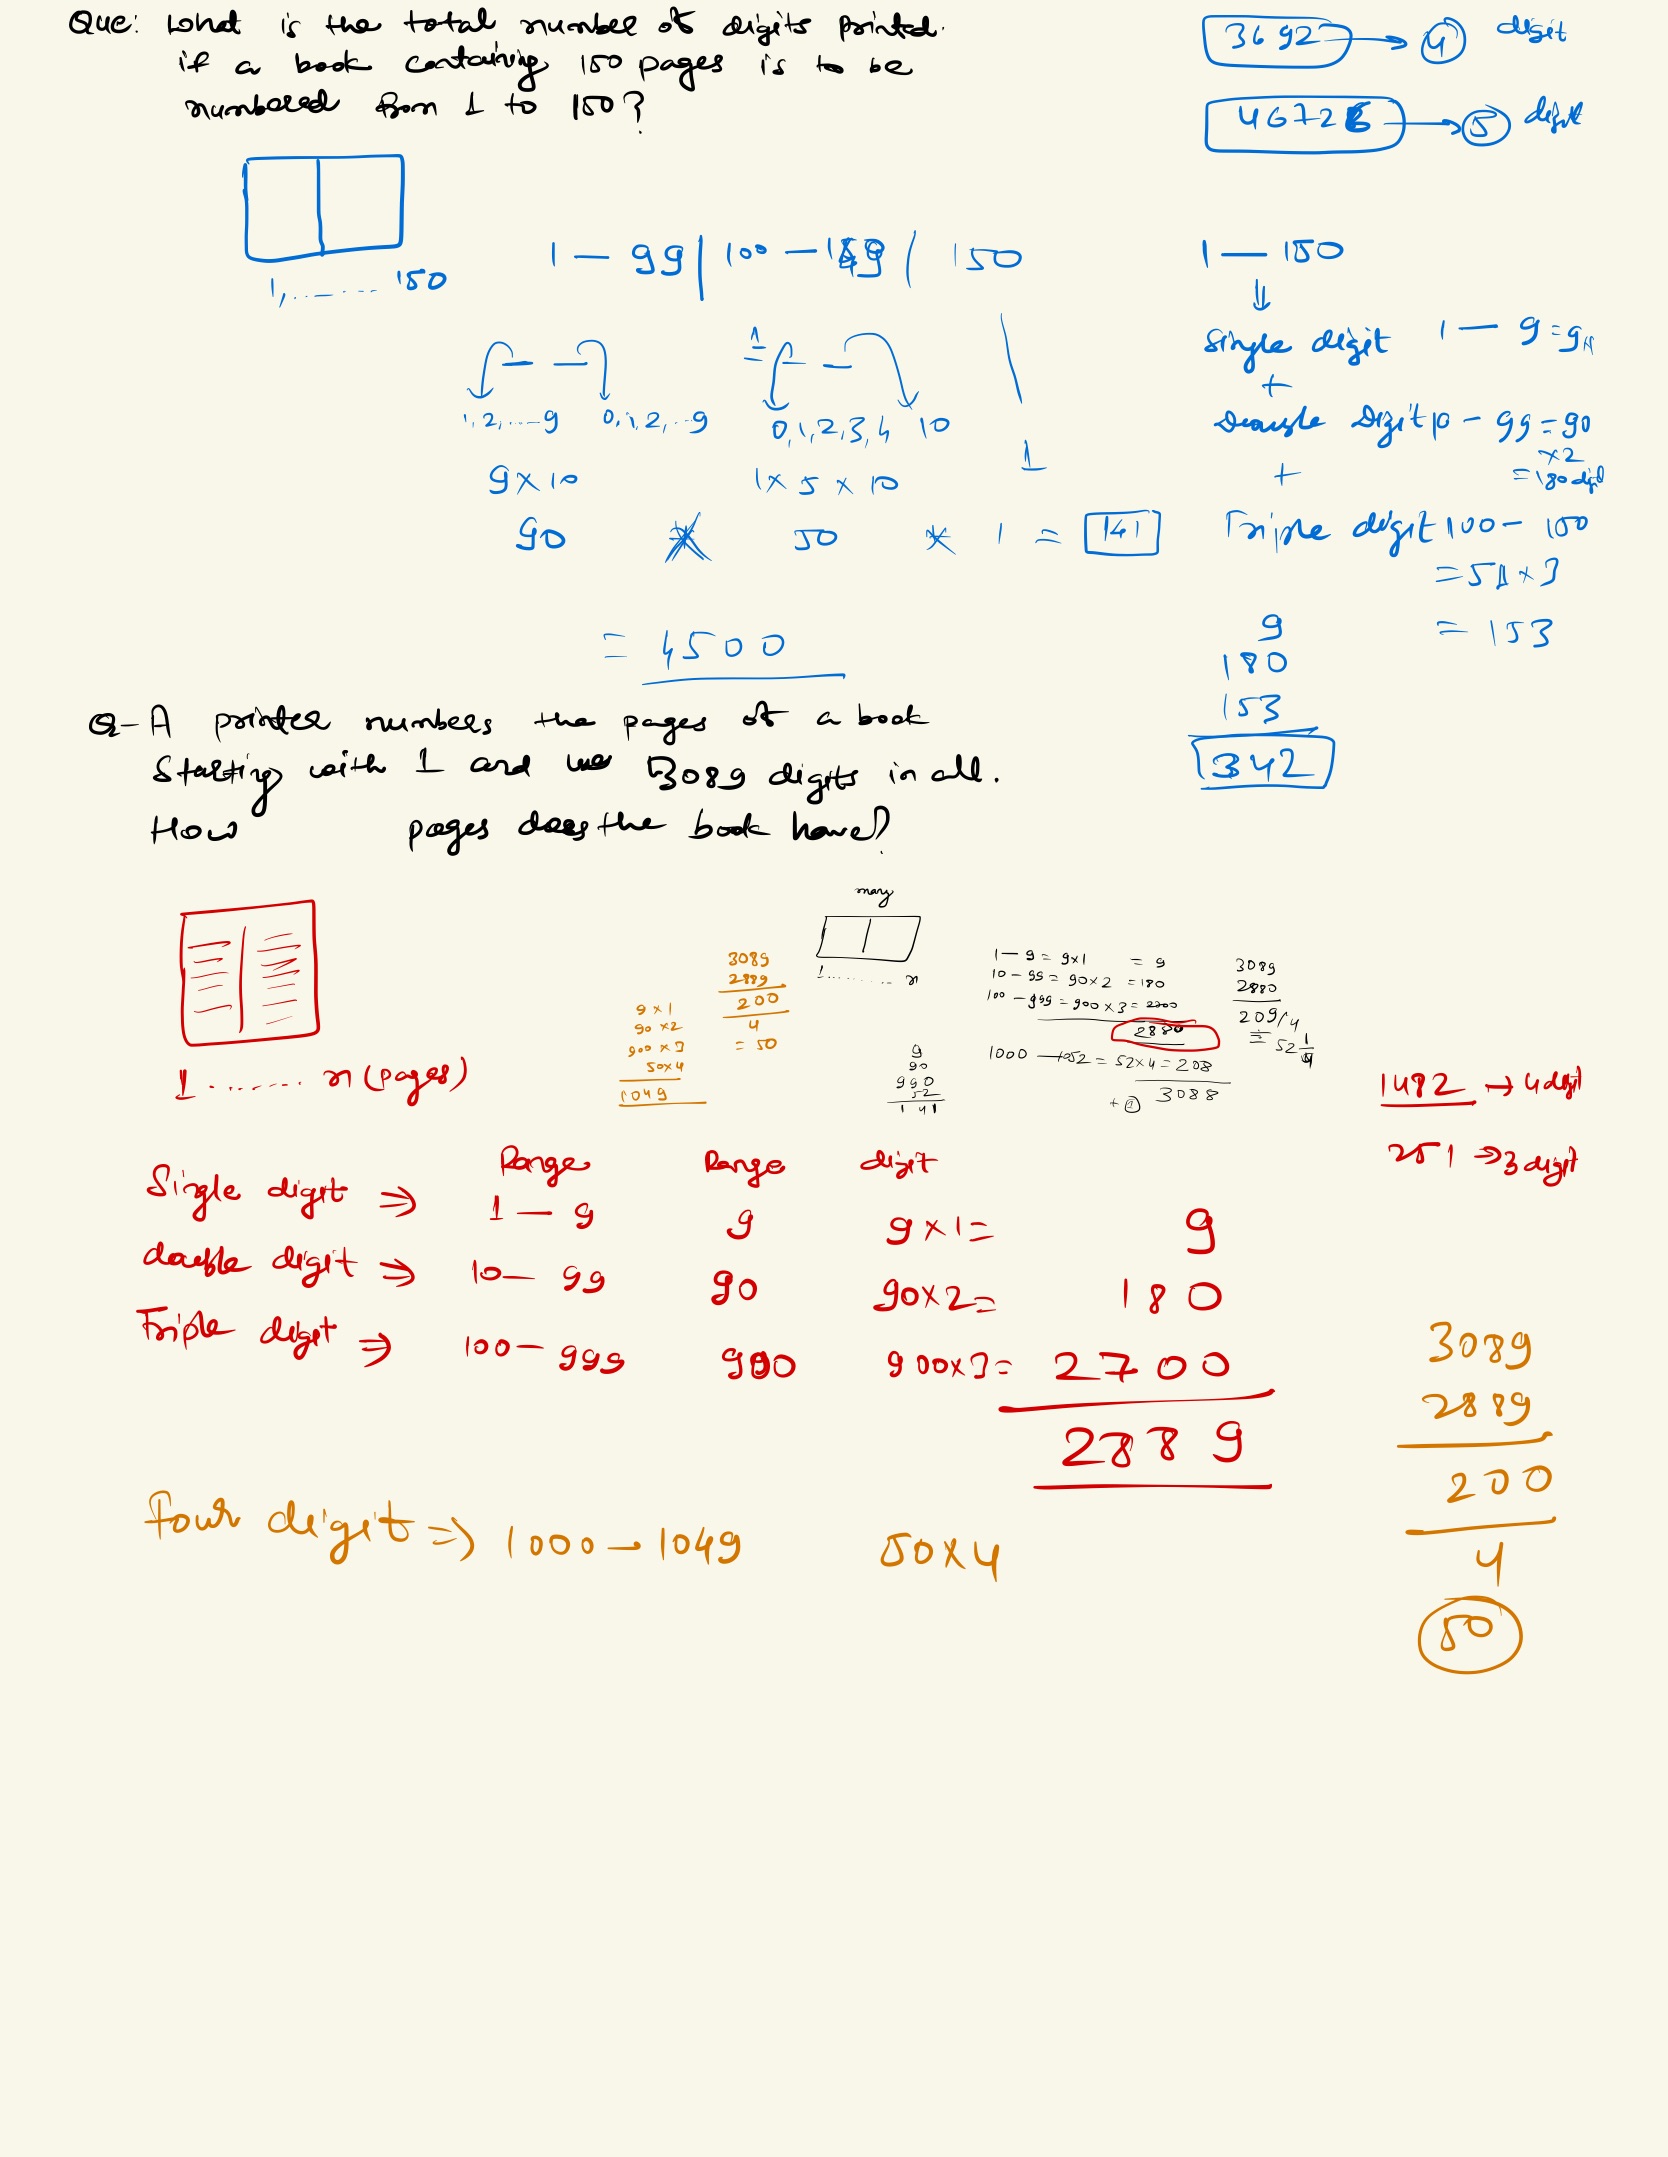 Que: What is the total number of digits printed.
if a book containing 150 pages is to be
numbered from 1 to 150?
3692 → 4 digit
46726 → 5 digit
1, ........ 150
1 — 99 | 100 — 149 | 150
1 — 150
⇓
Single digit 1 — 9 = 9
+
Double Digit 10 - 99 = 90
×2
= 180 digit
+
Triple digit 100 - 150
= 51 × 3
= 153
1
1, 2, ... 9 0, 1, 2, .. 9 0, 1, 2, 3, 4 10
1
9 × 10 1 × 5 × 10
90 × 50 × 1 = 141
= 4500
9
180
153
342
Q- A printer numbers the pages of a book
Starting with 1 and uses 3089 digits in all.
How pages does the book have?
many
1 ........... n
1 ........ n (pages)
9 × 1
90 × 2
900 × 3
50 × 4
1049
3089
2889
200
4
= 50
1 — 9 = 9×1 = 9
10 - 99 = 90×2 = 180
100 - 999 = 900×3 = 2700
2880
1000 - 1052 = 52×4 = 208
3088
+ 1
3089
2880
209/4
= 52 1/4
9
90
990
52
1 4 1
1482 → 4 digit
251 → 3 digit
Range Range digit
Single digit ⇒ 1 — 9 9 9 × 1 = 9
double digit ⇒ 10 — 99 90 90×2 = 180
Triple digit ⇒ 100 — 999 900 900×3 = 2700
2889
Four digit ⇒ 1000 — 1049 50×4
3089
2889
200
4
50